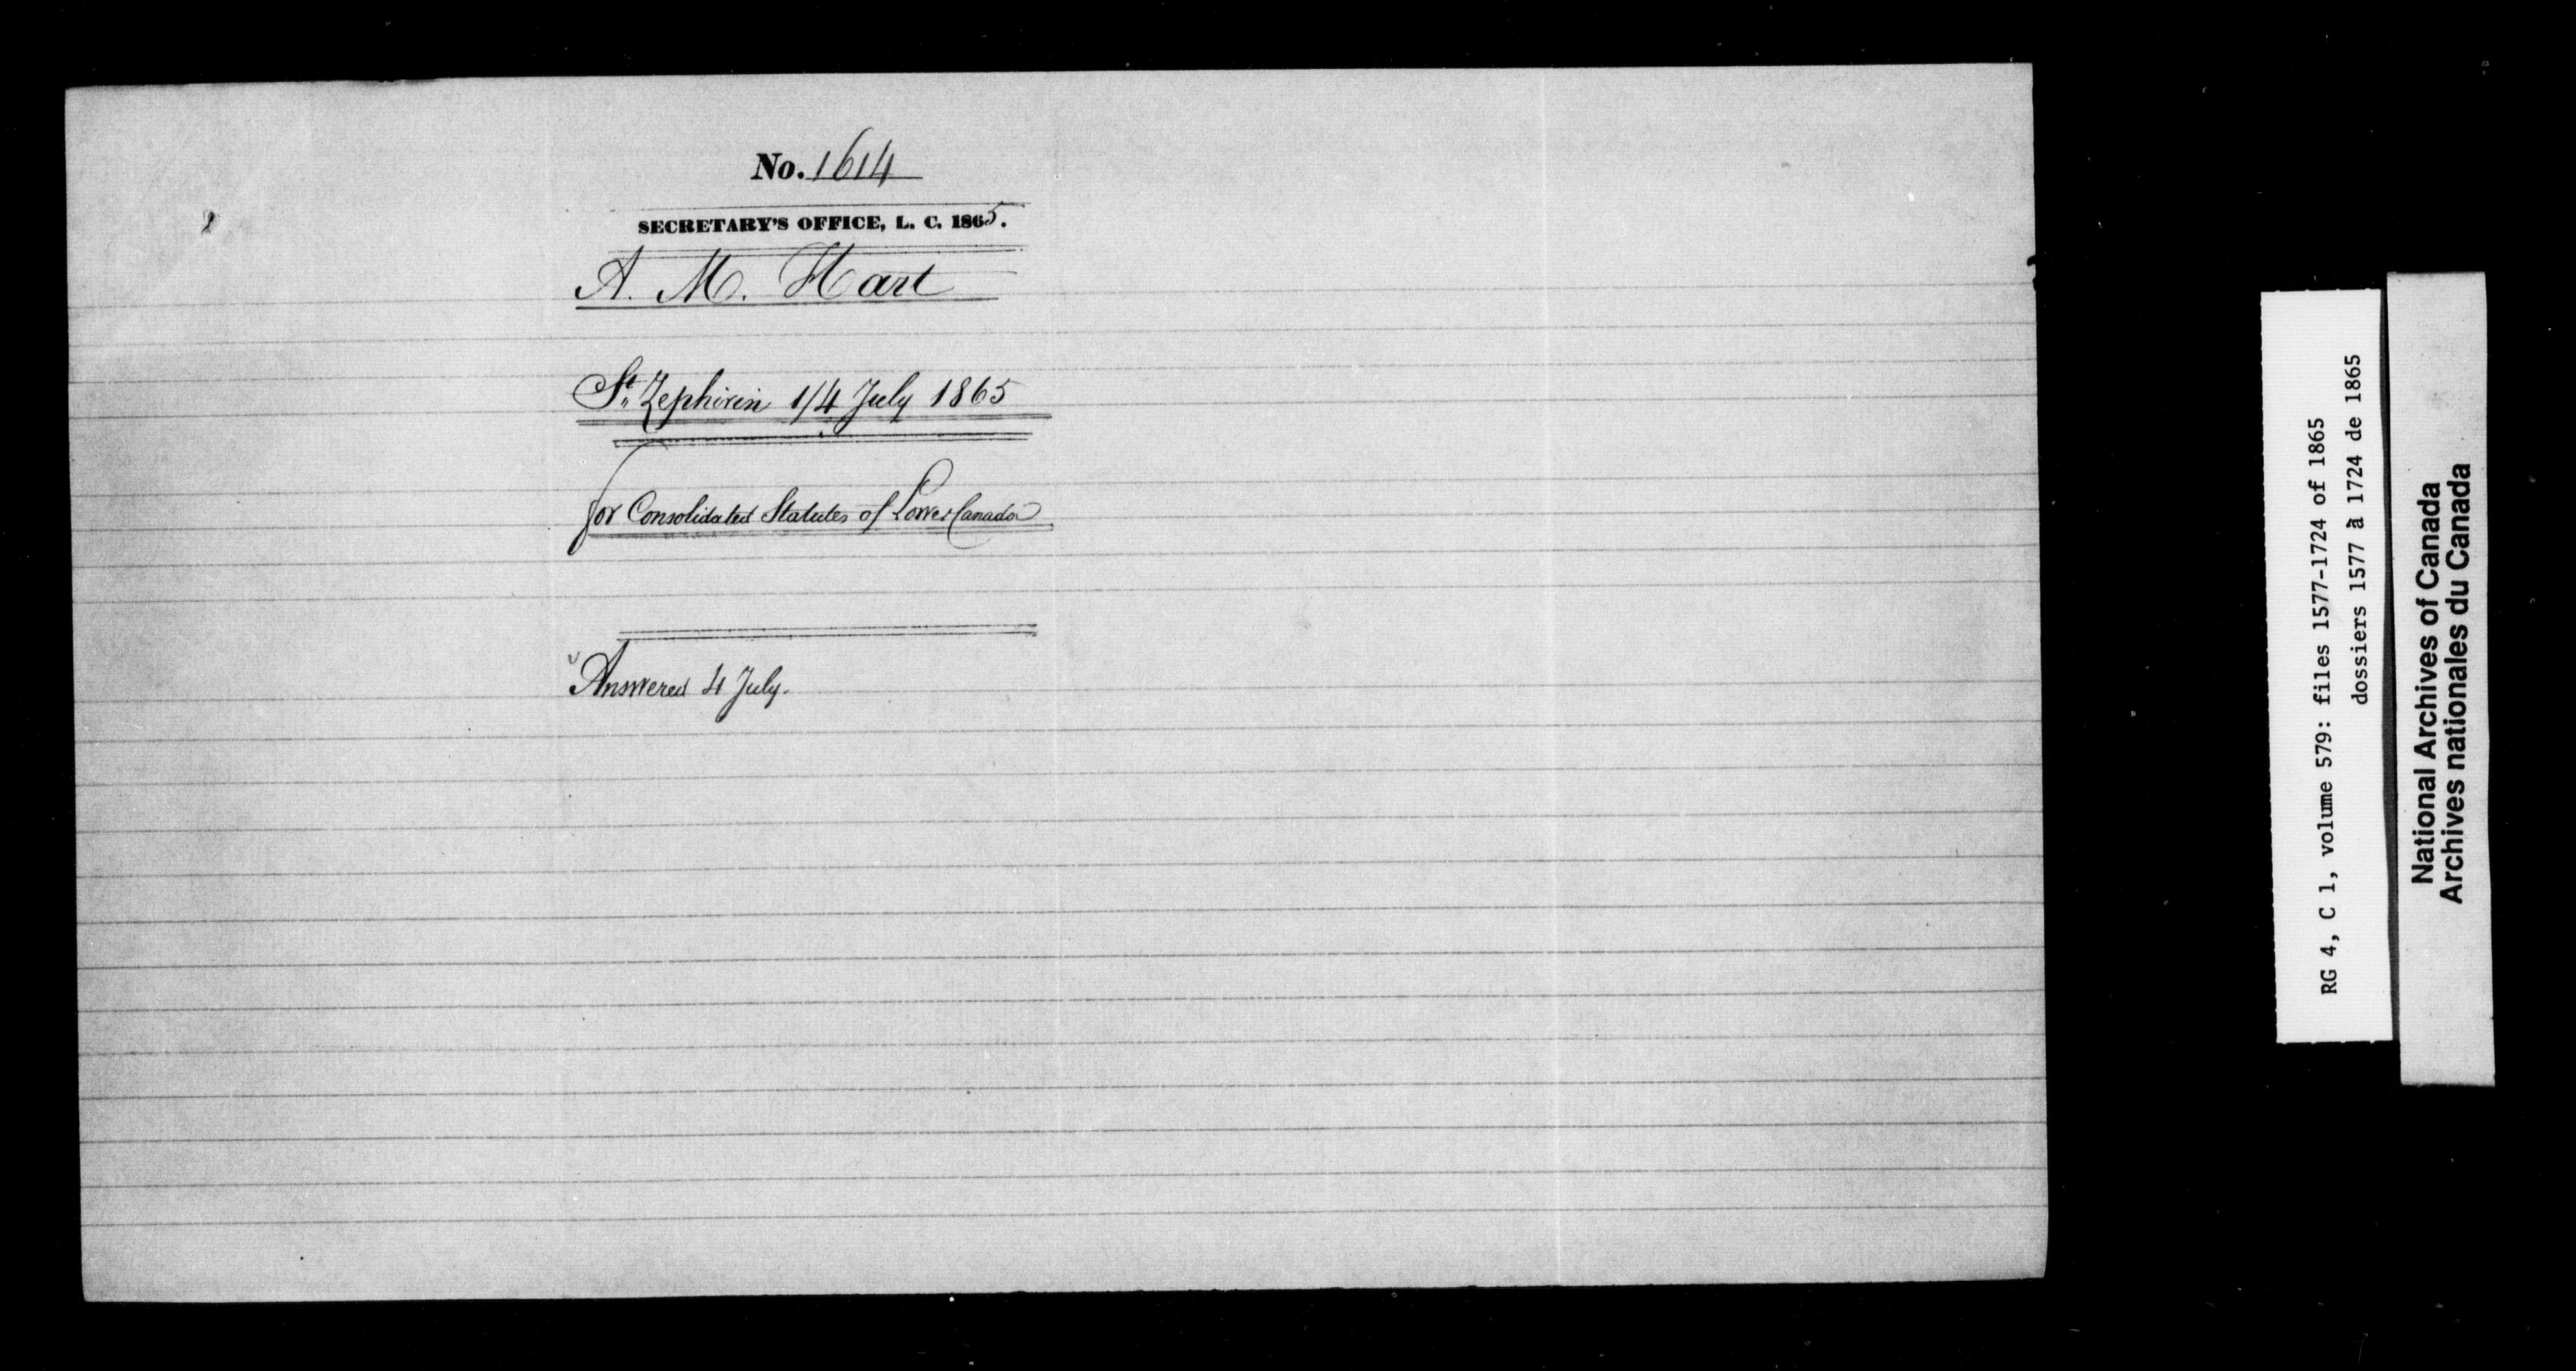 No. 1614
SECRETARY'S OFFICE, L. C. 1865.
A. M. Hart
St. Zephirin 1/4 July 1865
for Consolidated Statutes of Lower Canada
Answered 4 July.
RG 4, C 1, volume 579: files 1577-1724 of 1865
dossiers 1577 à 1724 de 1865
National Archives of Canada
Archives nationales du Canada